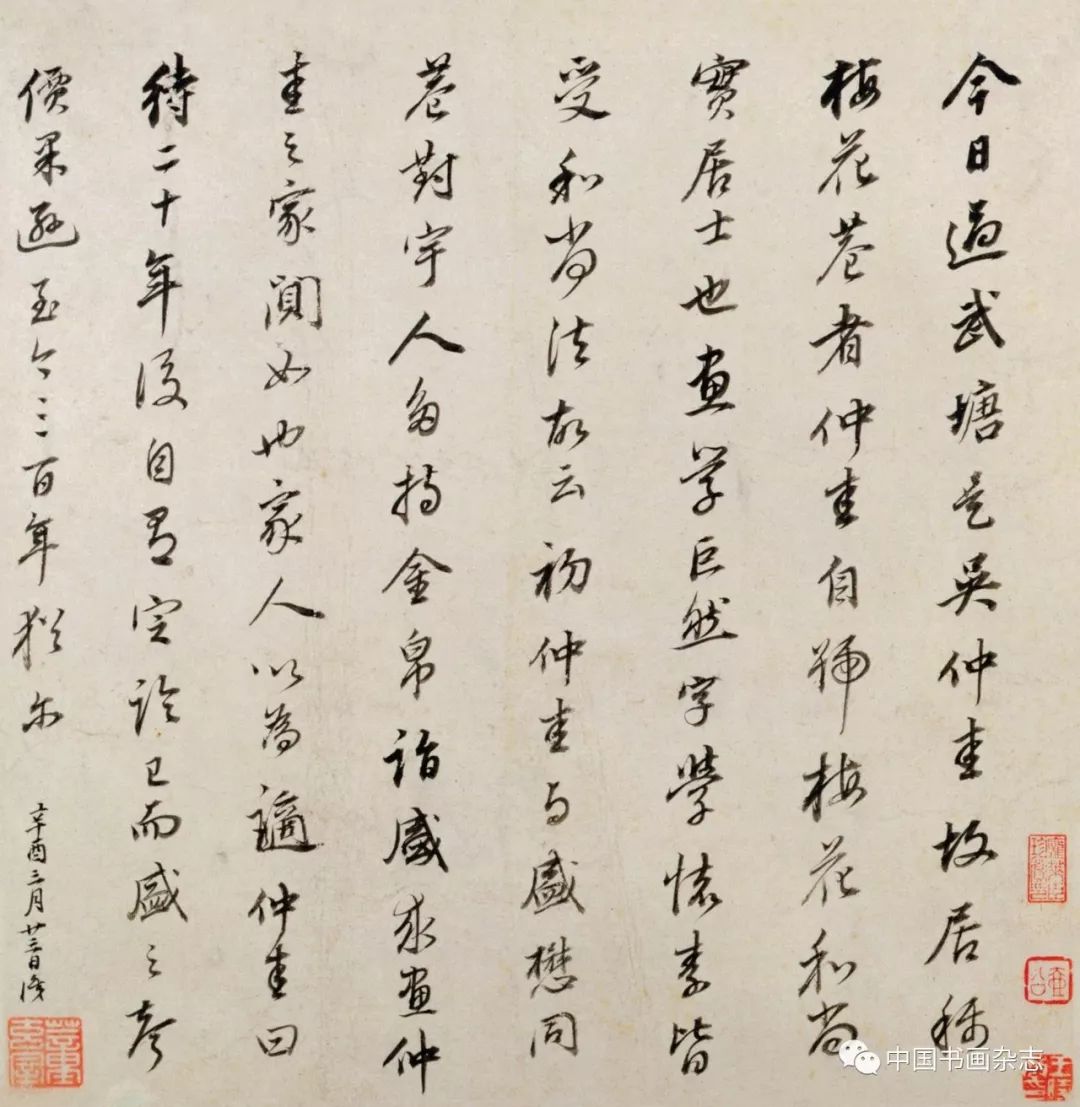 今日過武塘是吳仲圭故居稱
梅花菴者仲圭自號梅花和尚
實居士也畫學巨然字學懷素皆
受和尚法故云初仲圭與盛懋同
菴對宇人多持金帛詣盛求畫仲
圭之家闃如也家人以為謫仲圭曰
待二十年後自有定論已而盛之聲
價果遜至今三百年猶爾
辛酉三月廿三日識
中国书画杂志